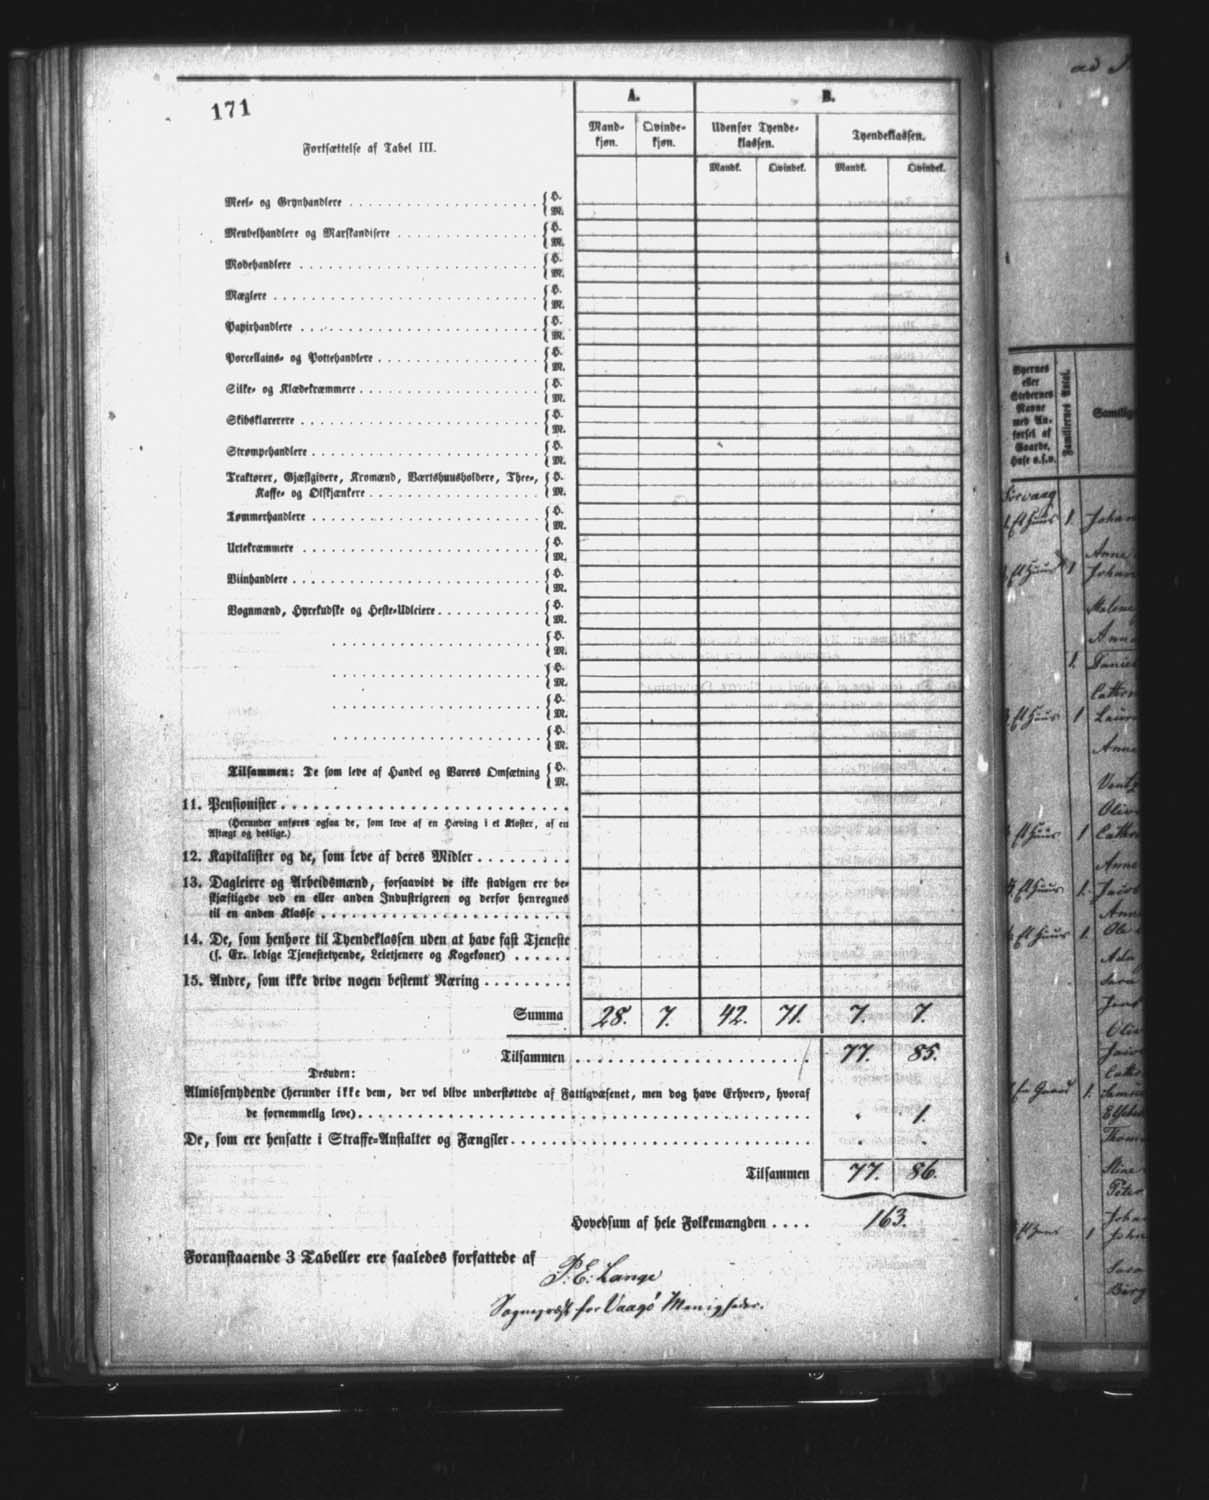 171
Fortsættelse af Tabel III.
A.
B.
Mand-
kjøn.
Qvinde-
kjøn.
Udenfor Tyende-
klassen.
Tyendeklassen.
Mandk.
Qvindek.
Mandk.
Qvindek.
Meel- og Grynhandlere { H.
M.
Meubelhandlere og Marskandisere { H.
M.
Modehandlere { H.
M.
Mæglere { H.
M.
Papirhandlere { H.
M.
Porcellains- og Pottehandlere { H.
M.
Silke- og Klædekræmmere { H.
M.
Skibsklarerere { H.
M.
Strømpehandlere { H.
M.
Traktører, Gjæstgivere, Kromænd, Værtshuusholdere, Thee-, { H.
Kaffe- og Ølskjænkere M.
Tømmerhandlere { H.
M.
Urtekræmmere { H.
M.
Viinhandlere { H.
M.
Vognmænd, Hyrekudske og Heste-Udleiere { H.
M.
{ H.
M.
{ H.
M.
{ H.
M.
{ H.
M.
Tilsammen: De som leve af Handel og Varers Omsætning { H.
M.
11. Pensionister
(Herunder anføres ogsaa de, som leve af en Hæving i et Kloster, af en
Aftægt og deslige.)
12. Kapitalister og de, som leve af deres Midler
13. Dagleiere og Arbeidsmænd, forsaavidt de ikke stadigen ere be-
skjæftigede ved en eller anden Industrigreen og derfor henregnes
til en anden Klasse
14. De, som henhøre til Tyendeklassen uden at have fast Tjeneste
(f. Ex. ledige Tjenestetyende, Leietjenere og Kogekoner)
15. Andre, som ikke drive nogen bestemt Næring
Summa 28. 7. 42. 71. 7. 7.
Tilsammen 77. 85.
Desuden:
Almissenydende (herunder ikke dem, der vel blive understøttede af Fattigvæsenet, men dog have Erhverv, hvoraf
de fornemmelig leve) . 1.
De, som ere hensatte i Straffe-Anstalter og Fængsler . .
Tilsammen 77. 86.
Hovedsum af hele Folkemængden 163.
Foranstaaende 3 Tabeller ere saaledes forfattede af
P. E. Lange
Sognepræst for Vaagø Menigheder.
ad
Byernes
eller
Stedernes
Navne
med An-
førsel af
Gaarde,
Huse o.s.v.
Familiernes Antal.
Samtlig
Sørvaag
Et Huus 1. Johan
Anne
Et Huus 1 Johan
Malene
Anna
1. Daniel
Cathrin
Et Huus 1
Anne
Et Huus 1
Anne
Et Huus 1.
Et Huus 1.
Jens
En Gaard 1.
Thom
Stine
Peter
Johan
1